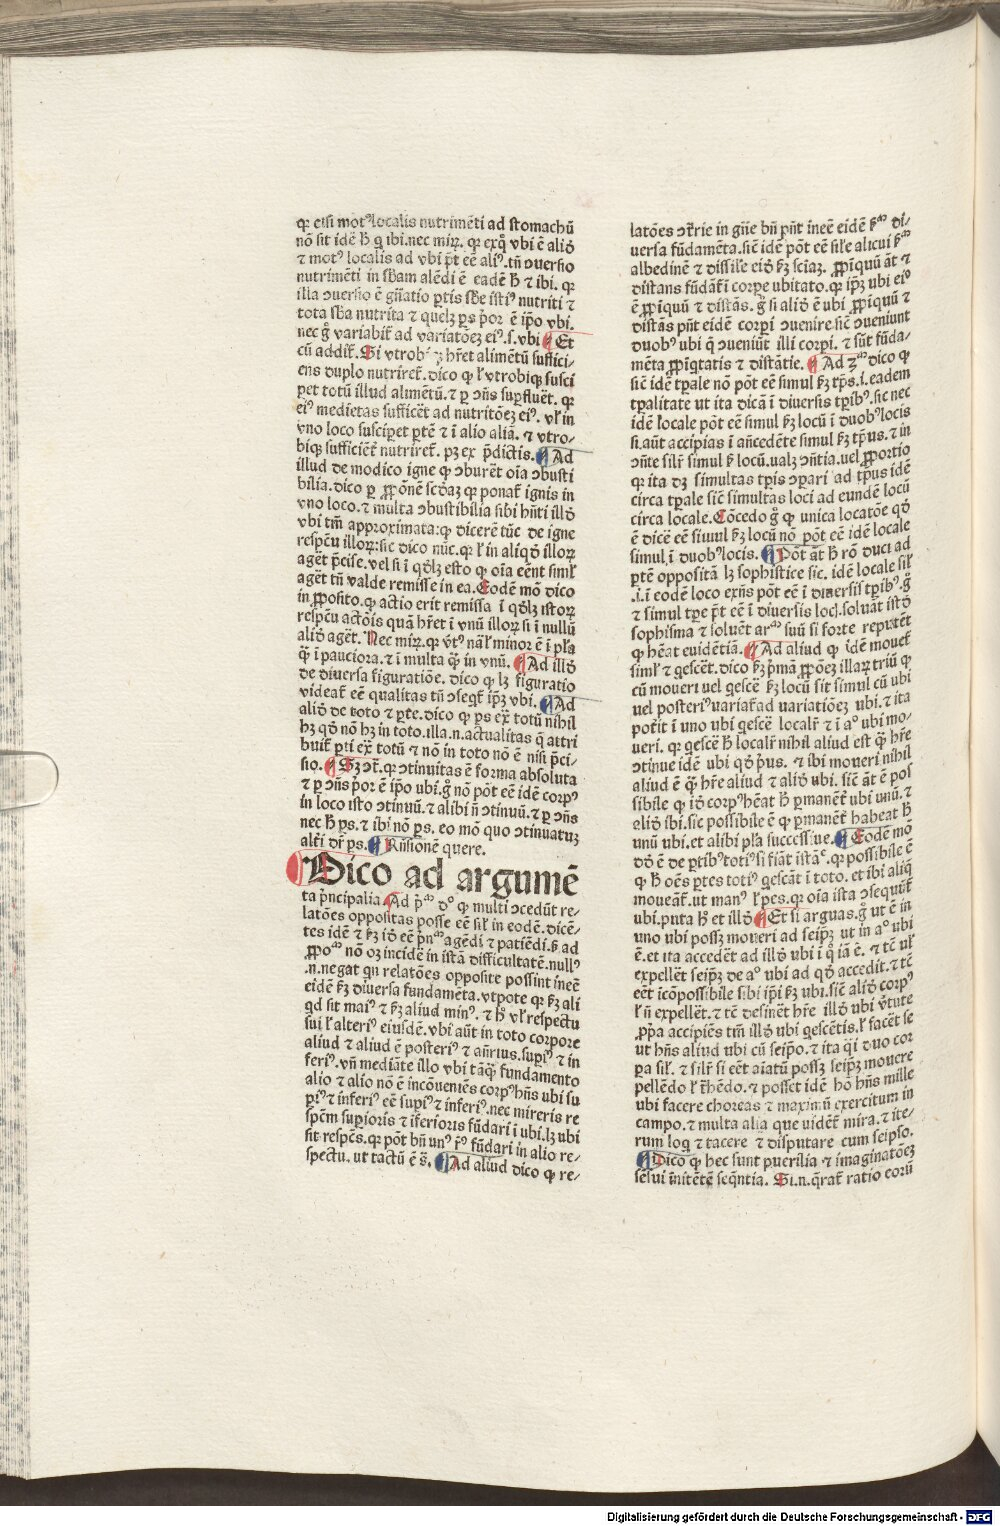 qꝛ etsi motꝰ localis nutrimēti ad stomachū
nō sit idē h̄ q̄ ibi. nec miꝝ. qꝛ exq̊ vbi ē aliđ
⁊ motꝰ localis ad vbi p̄t eē aliꝰ. tn̄ ↄuersio
nutrimēti in sb̄am alēdi ē eadē h̄ ⁊ ibi. qꝛ
illa ↄuersio ē gn̄atio ꝑtis sb̄e istiꝰ nutriti ⁊
tota sb̄a nutrita ⁊ quelꝫ ꝑs p̄or ē ip̄o vbi.
nec g̊ variabit̄ ad variatōeꝫ eiꝰ .s. vbi ¶ Et
cū addit̄. Si vtrobiqꝫ hr̄et alimētū suffici-
ens duplo nutriret̄. dico ꝙ ł vtrobiqꝫ susci
pet totū illud alimētū. ⁊ ꝑ ↄn̄s suꝑfluēt. qꝛ
eiꝰ medietas sufficēt ad nutritōeꝫ eiꝰ. vł in
vno loco susciꝑet ꝑtē ⁊ ī alio aliā. ⁊ vtro-
biqꝫ sufficiēt̄ nutriret̄. pꝫ ex p̄dictis. ¶ Ad
illud de modico igne ꝙ ↄburēt oīa ↄbusti
bilia. dico ꝑ ꝓpōnē scđaꝫ ꝙ ponat̄ ignis in
vno loco. ⁊ multa ↄbustibilia sibi hn̄ti illđ
vbi tm̄ approximata: ꝙ dicerē tūc de igne
respc̄u illoꝝ: sic dico nūc. ꝙ ł in aliq̊đ illoꝝ
aget p̄cise. vel si ī q̊đlꝫ esto ꝙ oīa eēnt simł
aget tn̄ valde remisse in ea. Eodē mō dico
in ꝓposito. ꝙ actio erit remissa ī q̊đlꝫ istoꝝ
respc̄u actōis quā hr̄et ī vnū illoꝝ si ī nullū
aliđ aget. Nec miꝝ. qꝛ ỽtꝰ nāł minor ē ī pła
q̄ ī pauciora. ⁊ ī multa q̄ in vnū. ¶ Ad illđ
de diuersa figuratiōe. dico ꝙ lꝫ figuratio
videat̄ eē qualitas tn̄ ↄseq̄t̄ ip̄ꝫ vbi. ¶ Ad
aliđ de toto ⁊ ꝑte. dico ꝙ ꝑs ex̄ totū nihil
hꝫ q̊đ nō hꝫ in toto. illa .n. actualitas q̄ attri
buit̄ ꝑti ex̄ totū ⁊ nō in toto nō ē nisi p̄ci-
sio. ¶ Sꝫ ↄt̄. qꝛ ↄtinuitas ē forma absoluta
⁊ ꝑ ↄn̄s p̄or ē ip̄o vbi. g̊ nō pōt eē idē corpꝰ
in loco isto ↄtinuū. ⁊ alibi n̄ ↄtinuū. ⁊ ꝑ ↄn̄s
nec h̄ ꝑs. ⁊ ibi nō ꝑs. eo mō quo ↄtinuatuꝫ
alt̄i dr̄ ꝑs. ¶ Rn̄sionē quere.
Dico ad argumē
ta p̄ncipalia Ad p̄ᵐ dᵒ ꝙ multi ↄcedūt re-
latōes oppositas posse eē sił in eodē. dicē-
tes idē ⁊ ẜꝫ iđ eē p̄nᵐ agēdi ⁊ patiēdi. ẜ ad
ꝓpoᵐ nō oꝫ incidē in istā difficultatē. nullꝰ
.n. negat qn relatōes opposite possint ineē
eidē ẜꝫ diuersa fundamēta. vtpote qꝛ ẜꝫ ali
qd sit maiꝰ ⁊ ẜꝫ aliud minꝰ. ⁊ h̄ vł respectu
sui ł alteriꝰ eiusdē. vbi aūt in toto corpore
aliud ⁊ aliud ē posteriꝰ ⁊ an̄rius. suꝑiꝰ ⁊ in
feriꝰ. vn̄ mediāte illo vbi tāq̄ fundamento
alio ⁊ alio nō ē incōueniēs corpꝰ hn̄s ubi su
ꝑiꝰ ⁊ inferiꝰ eē suꝑiꝰ ⁊ inferiꝰ. nec mireris re
spc̄m suꝑioris ⁊ īferioris fūdari ī ubi. lꝫ ubi
sit respc̄s. qꝛ pōt bn̄ unꝰ r̄ꝰ fūdari in alio re-
spectu. ut tactū ē s̄. ¶ Ad aliud dico ꝙ re-
latōes ↄt̄rie in gn̄e bn̄ pn̄t ineē eidē ẜᵐ di-
uersa fūdamēta. sic̄ idē pōt eē siłe alicui ẜᵐ
albedinē ⁊ dissiłe eiđ ẜꝫ sciaꝫ. ꝓpīquū āt ⁊
distans fūdāt̄ ī corpe ubitato. qꝛ ip̄ꝫ ubi eiꝰ
ē ꝓpīquū ⁊ distās. g̊ si aliđ ē ubi ꝓpīquū ⁊
distās pn̄t eidē corpꝰi ↄuenire. sic̄ ↄueniunt
duobꝰ ubi q̄ ↄueniūt illi corpi. ⁊ sūt fūda-
mēta ꝓpīq̄tatis ⁊ distātie. ¶ Ad 3ᵐ dico ꝙ
sic̄ idē tꝑale nō pōt eē simul ẜꝫ tꝑs .i. eadem
tꝑalitate ut ita dicā ī diuersis tꝑibꝰ. sic nec
idē locale pōt eē simul ẜꝫ locū ī duobꝰ locis
si. aūt accipias ī an̄cedēte simul ẜꝫ tp̄us. ⁊ in
ↄn̄te silr̄ simul ẜ locū. ualꝫ ↄn̄tia. uel ꝓportio
qꝛ ita dꝫ simultas tꝑis ↄparari ad tp̄us idē
circa tꝑale sic̄ simultas loci ad eundē locū
circa locale. Cōcedo g̊ ꝙ unica locatōe q̊đ
ē dicē eē simul ẜꝫ locū nō pōt eē idē locale
simul ī duobꝰ locis. ¶ Pōt āt h̄ rō duci ad
ꝑtē oppositā lꝫ sophistice sic. idē locale sił
.i. ī eodē loco exn̄s pōt eē ī diuersis tꝑibꝰ. g̊
⁊ simul tꝑe p̄t eē ī diuersis locis. soluāt istđ
sophisma ⁊ soluēt arᵐ suū si forte reputēt
ꝙ hēat euidētiā. ¶ Ad aliud ꝙ idē mouet̄
simł ⁊ q̄escēt. dico ẜꝫ p̄mā ꝓpōeꝫ illaꝝ triū ꝙ
cū moueri uel q̄escē ẜꝫ locū sit simul cū ubi
uel posteriꝰ variat̄ ad uariatiōeꝫ ubi. ⁊ ita
pot̄it ī uno ubi q̄escē localr̄ ⁊ ī aᵒ ubi mo-
ueri. qꝛ q̄escē h̄ localr̄ nihil aliud est q̄ hr̄e
ↄtinue idē ubi q̊đ p̄us. ⁊ ibi moueri nihil
aliud ē q̄ hr̄e aliud ⁊ aliđ ubi. sic̄ āt ē pos
sibile ꝙ iđ corpꝰ hēat h̄ ꝑmanēt̄ ubi unū. ⁊
aliđ ibi. sic possibile ē ꝙ ꝑmanēt̄ habeat h̄
unū ubi. et alibi pła successiue. ¶ Eodē mō
dđ ē de ꝑtibꝰ totiꝰ si fiāt istāᵉ. qꝛ possibile ē
ꝙ h̄ oēs ꝑtes totiꝰ q̄escāt ī toto. et ibi aliq̄
moueāt̄. ut manꝰ ł pes. qꝛ oīa ista ↄseq̄ūt̄
ubi. puta h̄ et illđ ¶ Et si arguas. g̊ ut ē in
uno ubi possꝫ moueri ad seip̄ꝫ ut in aᵒ ubi
ē. et ita accedēt ad illđ ubi ī q̄ iā ē. ⁊ tē uł
expellēt seip̄ꝫ de aᵒ ubi ad qđ accedit. ⁊ tē
eēt icōpossibile sibi ip̄i ẜꝫ ubi. sic̄ aliđ corpꝰ
ł n̄ expellēt. ⁊ tē desinēt hr̄e illđ ubi ỽtute
ꝓp̄a accipiēs tm̄ illđ ubi q̄escētis. ł facēt se
ut hn̄s aliud ubi cū seip̄o. ⁊ ita q̄i duo cor
ꝑa sił. ⁊ silr̄ si eēt aīatū possꝫ seip̄ꝫ mouere
pellēdo ł tr̄hēdo. ⁊ posset idē hō hn̄s mille
ubi facere choreas ⁊ maximū exercitum in
campo. ⁊ multa alia que uidēt̄ mira. ⁊ ite-
rum loq̄ ⁊ tacere ⁊ disputare cum seipso.
¶ Dico ꝙ hec sunt puerilia ⁊ imaginatōeꝫ
sēsui īnitētē seq̄ntia. Si .n. q̄rat̄ ratio corū
Digitalisierung gefördert durch die Deutsche Forschungsgemeinschaft - DFG